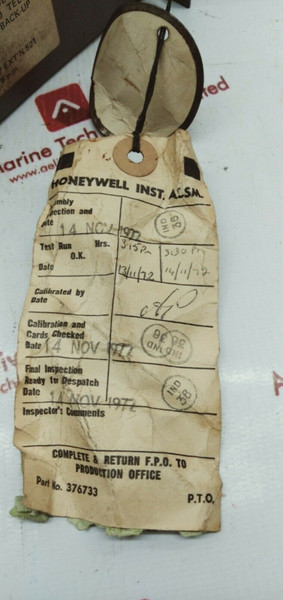 BACK UP
EXT'N.521
HONEYWELL INST. ALSM.
Assembly
Inspection and
Date 14 NOV 1972
Test Run Hrs. 3:15 Pm 3:30 Pm
O.K.
Date 13/11/72 14/11/72
Calibrated by
Date
Calibration and
Cards Checked
Date 14 NOV 1972
IND IND 38
Final Inspection
Ready to Despatch
Date 14 NOV 1972
IND 38
Inspector's Comments
COMPLETE & RETURN F.P.O. TO
PRODUCTION OFFICE
Part No. 376733 P.T.O.